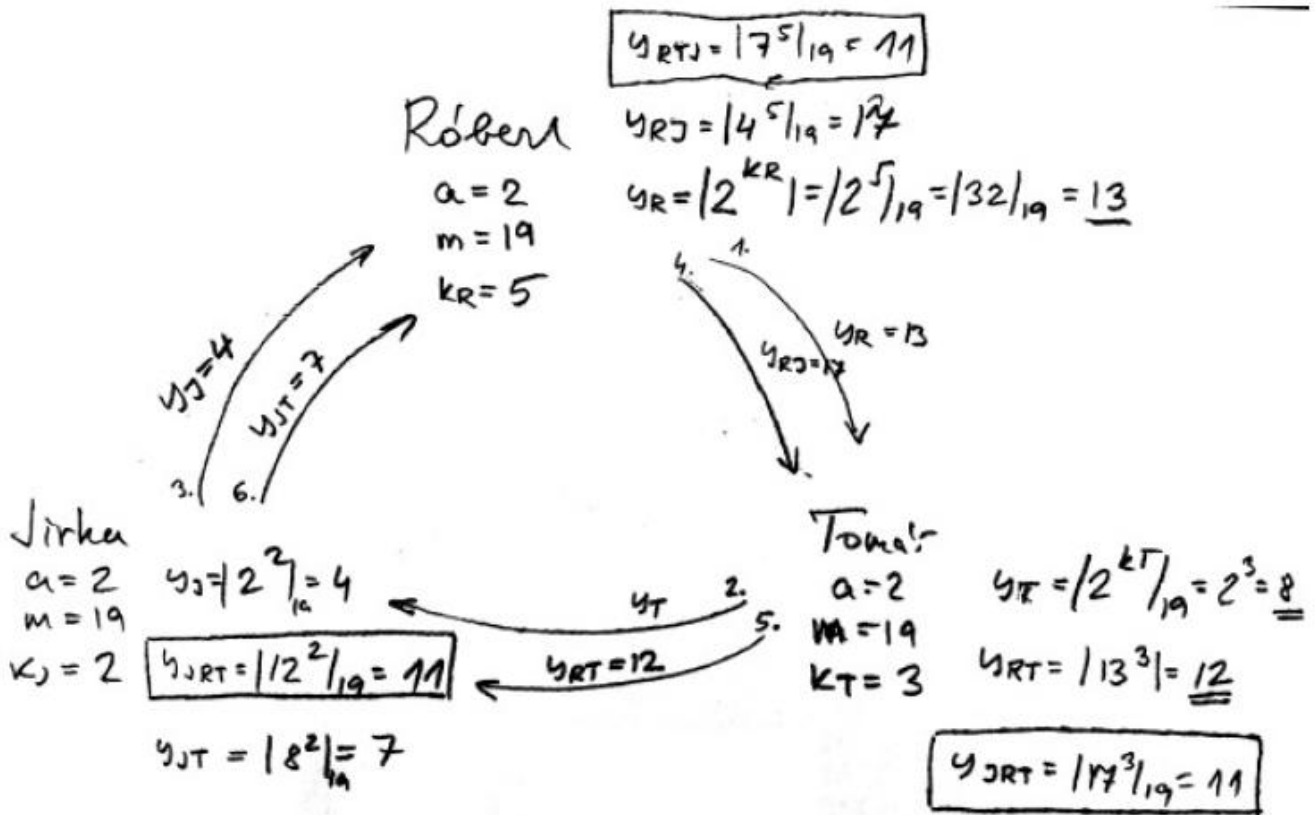 y_RTJ = |7^5|_19 = 11
Róbert
y_RJ = |4^5|_19 = 17
a = 2
y_R = |2^kR| = |2^5|_19 = |32|_19 = 13
m = 19
k_R = 5
1.
4.
y_J = 4
y_JT = 7
y_R = 13
y_RJ = 17
3.
6.
Jirka
a = 2
m = 19
k_J = 2
y_J = |2^2|_19 = 4
y_JRT = |12^2|_19 = 11
y_JT = |8^2|_19 = 7
y_T
2.
5.
y_RT = 12
Tomáš
a = 2
m = 19
k_T = 3
y_T = |2^kT|_19 = 2^3 = 8
y_RT = |13^3| = 12
y_JRT = |17^3|_19 = 11